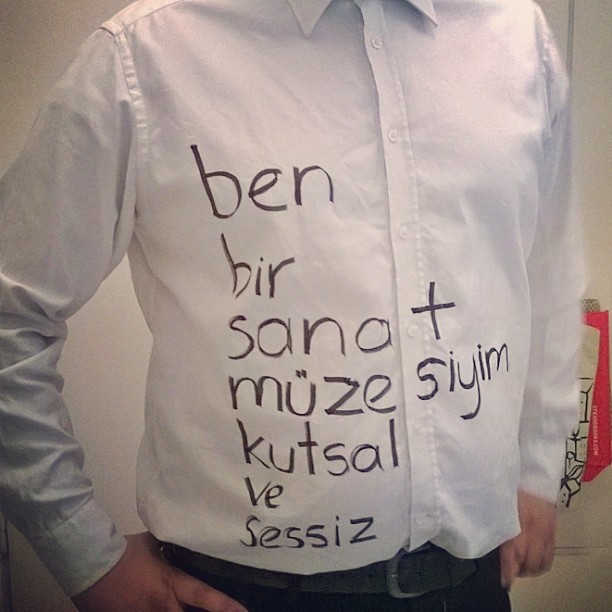 ben
bir
sanat
müzesiyim
kutsal
ve
sessiz